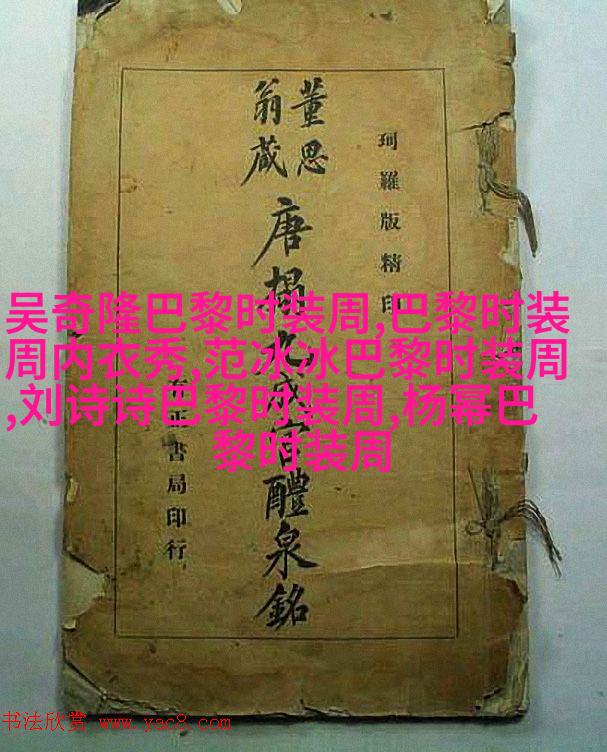 珂羅版精印
董思
翁藏
唐搨九成宮醴泉銘
正書局印行
吴奇隆巴黎时装周,巴黎时装
周内衣秀,范冰冰巴黎时装周
,刘诗诗巴黎时装周,杨幂巴
黎时装周
书法欣赏 www.yac8.com